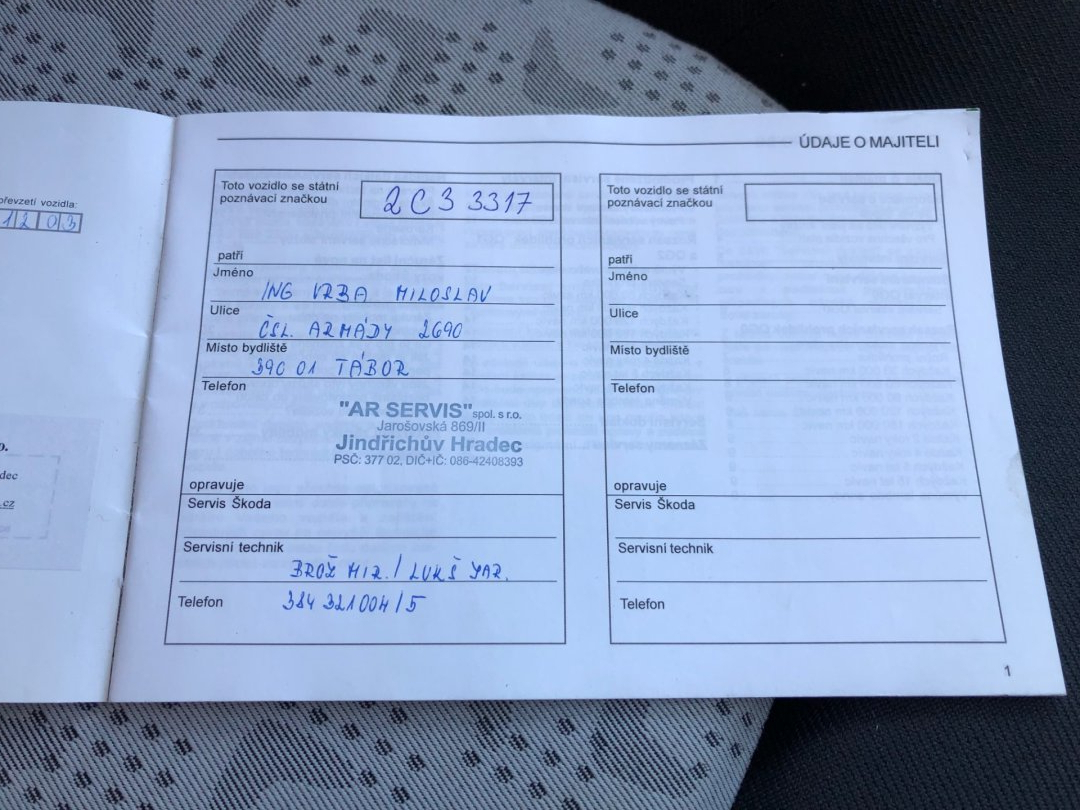 převzetí vozidla:
1 2 0 3
dec
.cz
ÚDAJE O MAJITELI
Toto vozidlo se státní
poznávací značkou
2C3 3317
patří
Jméno
ING VRBA MILOSLAV
Ulice
ČSL. ARMÁDY 2690
Místo bydliště
390 01 TÁBOR
Telefon
"AR SERVIS" spol. s r.o.
Jarošovská 869/II
Jindřichův Hradec
PSČ: 377 02, DIČ+IČ: 086-42408393
opravuje
Servis Škoda
Servisní technik
BROŽ MIR. / LUKŠ JAR.
Telefon
384 321004/5
Toto vozidlo se státní
poznávací značkou
patří
Jméno
Ulice
Místo bydliště
Telefon
opravuje
Servis Škoda
Servisní technik
Telefon
1